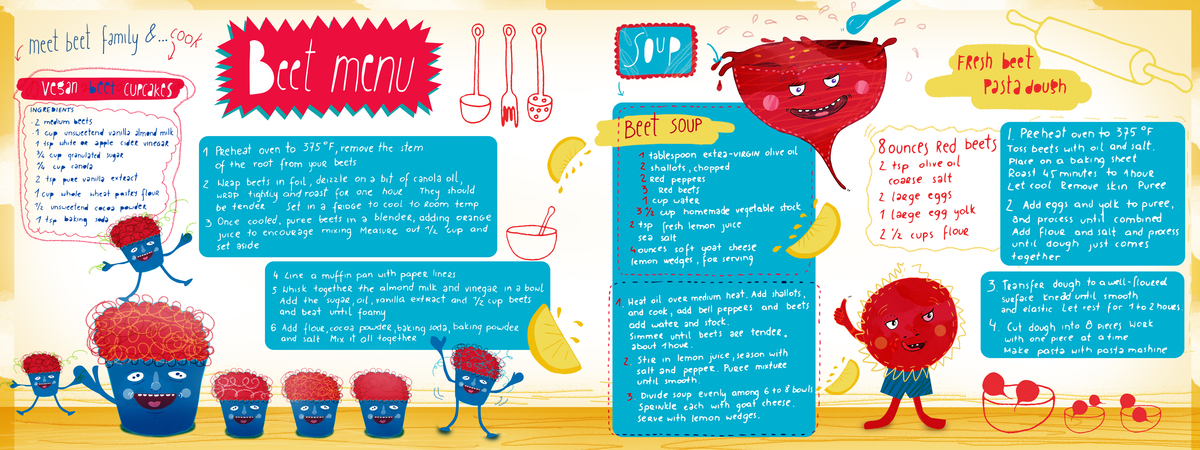 meet beet family &... cook
Beet menu
vegan beet cupcakes
INGREDIENTS
2 medium beets
1 cup unsweetend vanilla almond milk
1 tsp white or apple cider vinegar
3/4 cup granulated sugar
1/4 cup canola
2 tsp pure vanilla extract
1 cup whole wheat pastes flour
1/2 unsweetend cocoa powder
1 tsp baking soda
1 Preheat oven to 375°F, remove the stem
of the root from your beets
2 Wrap beets in foil, drizzle on a bit of canola oil,
wrap tightly and roast for one hour They should
be tender Set in a fridge to cool to room temp
3 Once cooled, puree beets in a blender, adding orange
juice to encourage mixing Measure out 1/2 cup and
set aside
4 Line a muffin pan with paper liners
5 Whisk together the almond milk and vinegar in a bowl
Add the sugar, oil, vanilla extract and 1/2 cup beets
and beat until foamy
6 Add flour, cocoa powder, baking soda, baking powder
and salt Mix it all together
Soup
BEET SOUP
1 tablespoon extra-virgin olive oil
2 shallots, chopped
2 Red peppers
3 Red beets
1 cup water
3 1/2 cup homemade vegetable stock
2 tsp fresh lemon juice
sea salt
4 ounces soft goat cheese
lemon wedges, for serving
1. Heat oil over medium heat. Add shallots,
and cook, add bell peppers and beets
add water and stock.
Simmer until beets are tender,
about 1 hour.
2. Stir in lemon juice, season with
salt and pepper. Puree mixture
until smooth.
3. Divide soup evenly among 6 to 8 bowls
Sprinkle each with goat cheese.
Serve with lemon wedges.
FResh beet
Pasta dough
8 ounces Red beets
2 tsp olive oil
coarse salt
2 large eggs
1 large egg yolk
2 1/2 cups flour
1. Preheat oven to 375°F
Toss beets with oil and salt.
Place on a baking sheet
Roast 45 minutes to 1 hour
Let cool Remove skin Puree
2 Add eggs and yolk to puree,
and process until combined
Add flour and salt and process
until dough just comes
together
3. Transfer dough to a well-floured
surface Knead until smooth
and elastic Let rest for 1 to 2 hours
4. Cut dough into 8 pieces Work
with one piece at a time
Make pasta with pasta mashine